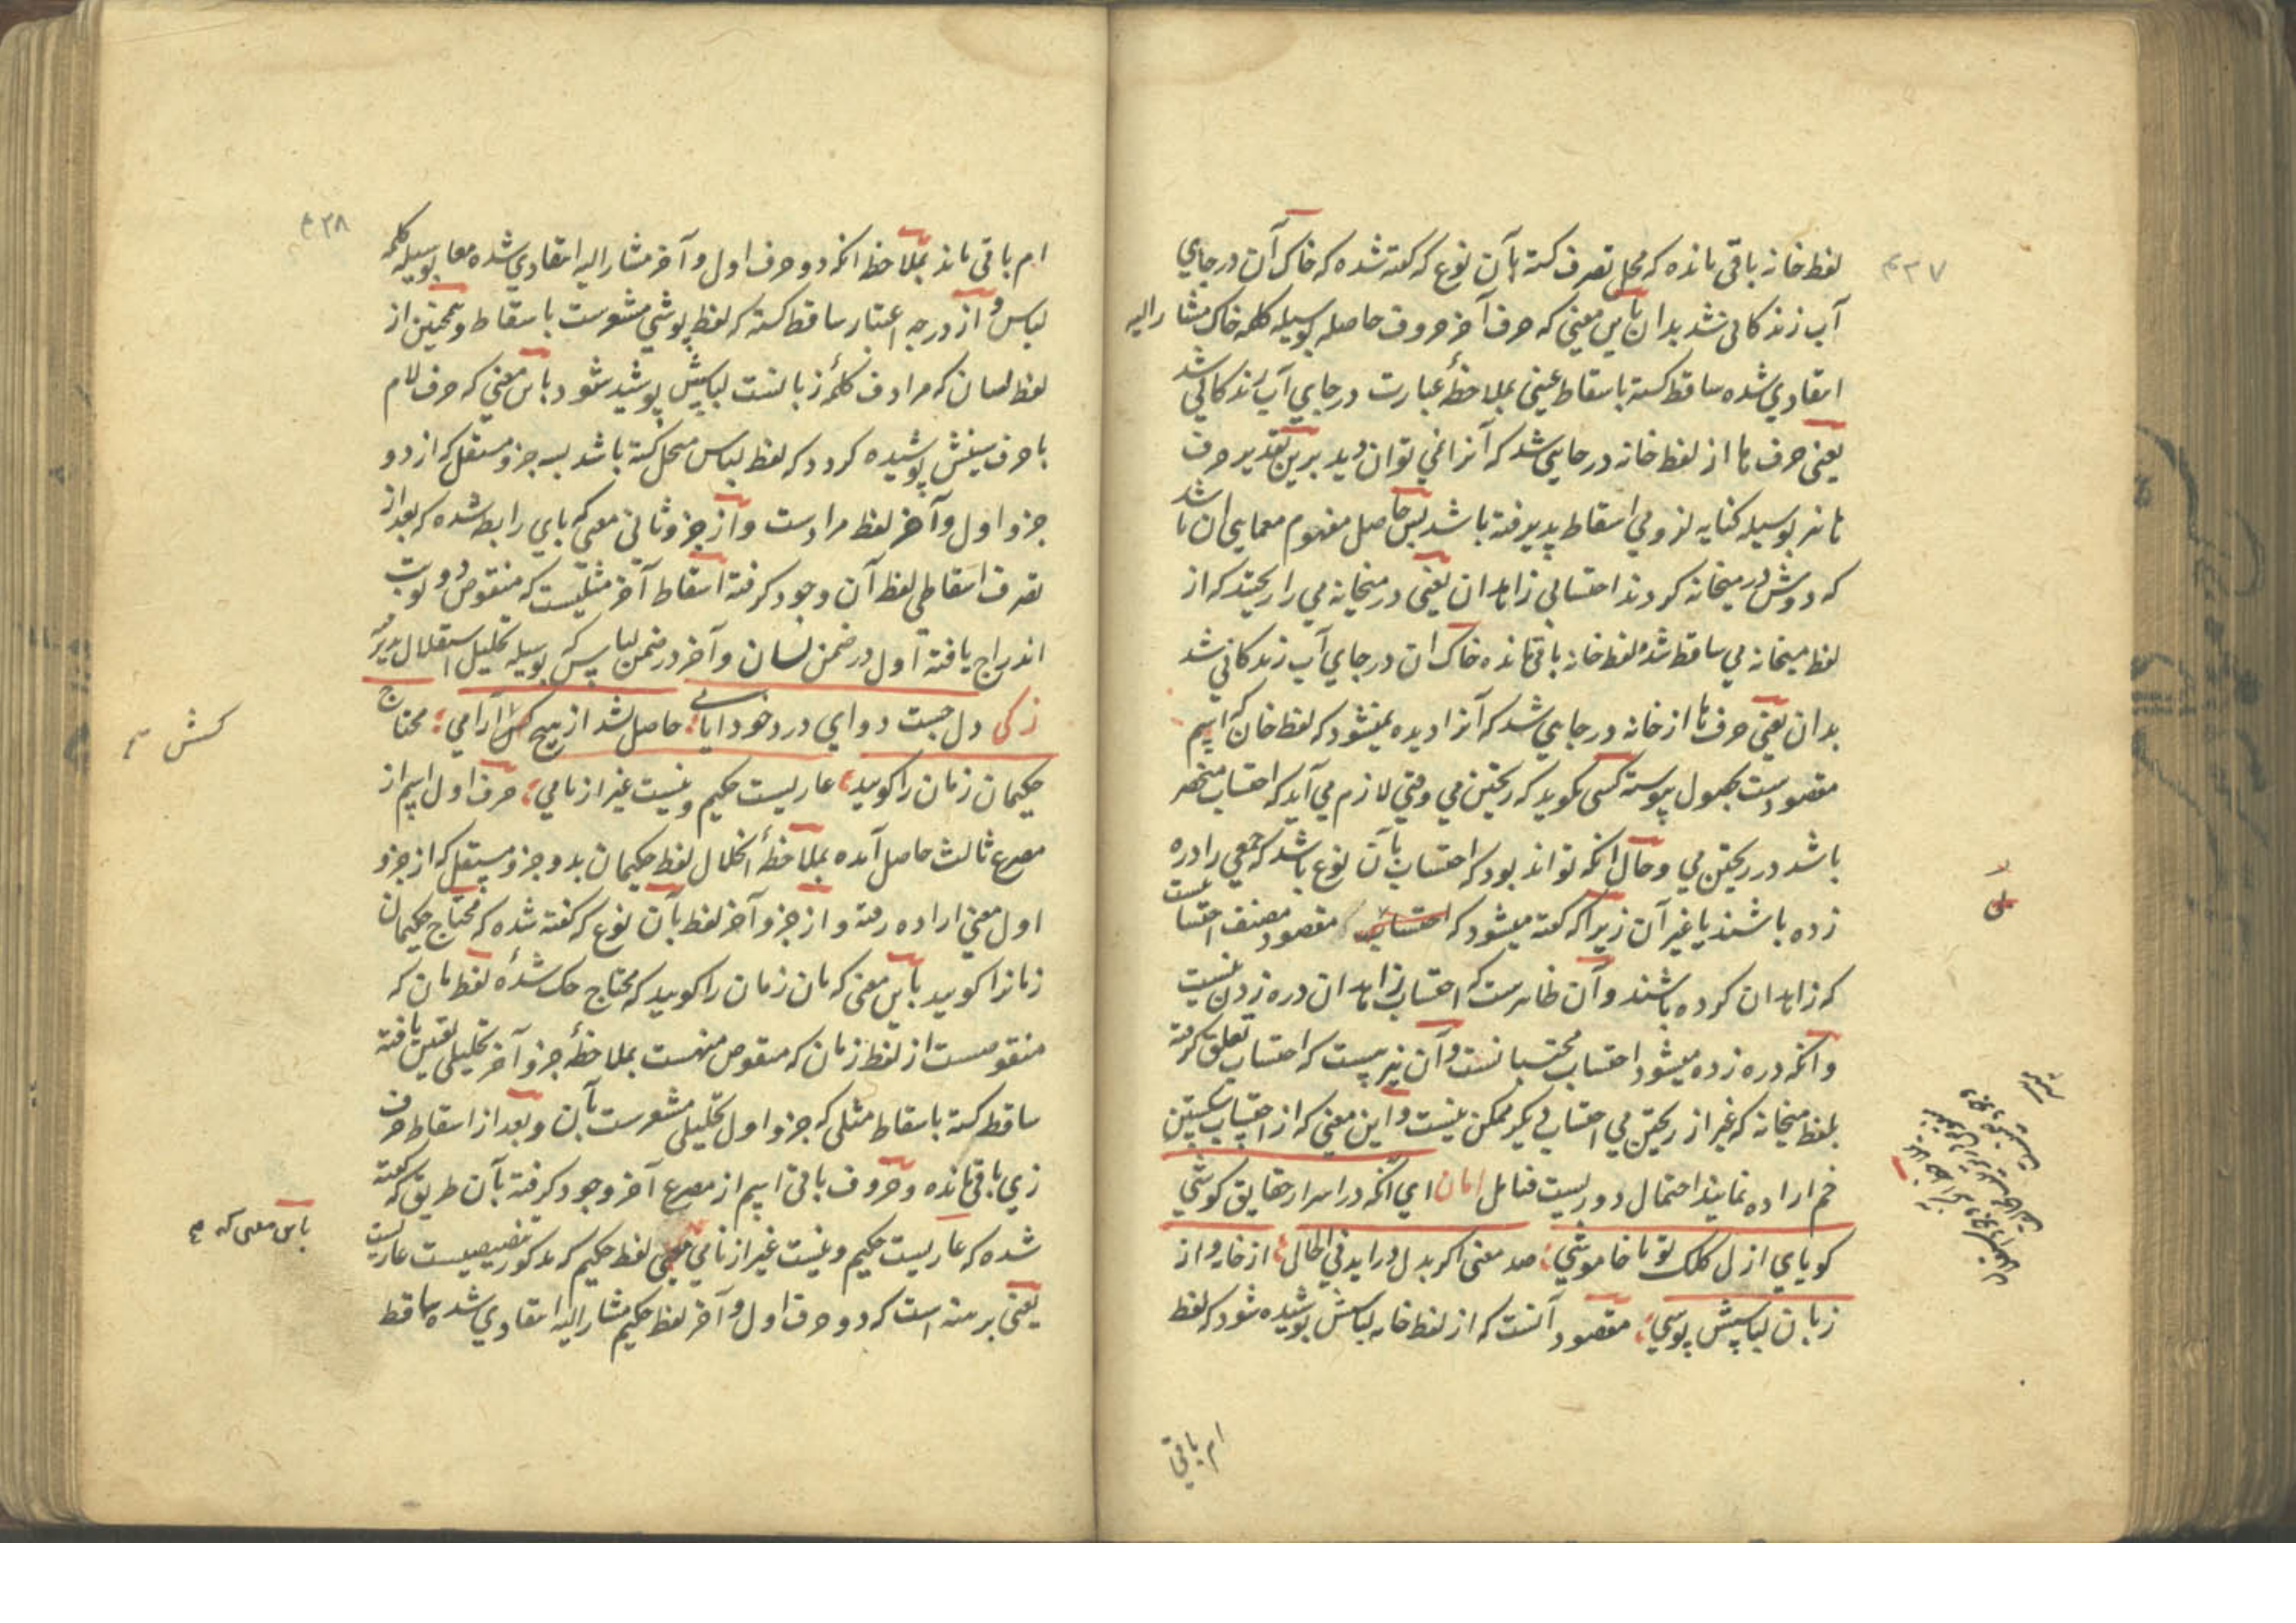 ۴۳۷
لفظ خانه باقی مانده که محل تصرف کشته بآن نوع که گفته شده که خاک آن در جای
آب زندکانی شد بدان باین معنی که حرف آخر حروف حاصله بوسیله کلمه خاک مشار الیه
انتقادی شده ساقط کشته باسقاط عینی بملاحظهٔ عبارت در جای آب زندکانی شد
یعنی حرف ها از لفظ خانه در جایی شد که آنرا نمی توان دید برین تقدیر حرف
ها نیز بوسیله کنایه لزومی اسقاط پذیرفته باشد پس حاصل مفهوم معمایی ان باشد
که دوش در میخانه کردند احتسابی زاهدان یعنی در میخانه می را ریختند که از
لفظ میخانه می ساقط شد و لفظ خانه باقی مانده خاک ان در جای آب زندکانی شد
بدان یعنی حرف ها از خانه در جایی شد که آنرا دیده نمیشود که لفظ خان که اسم
مقصودست بحصول پیوسته کسی نکوید که ریختن می وقتی لازم می آید که احتساب منحصر
باشد در ریختن می و حال انکه تواند بود که احتساب بآن نوع باشد که جمعی را دره
زده باشند یا غیر آن زیرا که گفته میشود که احتساب مقصود مصنف احتسابیست
که زاهدان کرده باشند و آن ظاهرست که احتساب زاهدان دره زدن نیست
و انکه دره زده میشود احتساب محتسبانست و آن نیز هست که احتساب تعلق گرفته
بلفظ میخانه که غیر از ریختن می احتساب دیکر ممکن نیست و این معنی که از احتساب شکستن
خم اراده نمایند احتمال دوریست فتامل امان ای انکه در اسرار حقایق کوشی
کویای ازل کلک تو با خاموشی صد معنی اکر بدل دراید فی الحال از خانه و از
زبان لباسش پوشی مقصود آنست که از لفظ خانه لباسش پوشیده شود که لفظ
ام باقی
۴۳۸
ام باقی ماند بملاحظه انکه دو حرف اول و آخر مشار الیه انتقادی شده معا بوسیله کلمه
لباس و از درجه اعتبار ساقط کشته که لفظ پوشی مشعرست باسقاط و همچنین از
لفظ لسان که مرادف کلمهٔ زبانست لباسش پوشید شود باین معنی که حرف لام
با حرف سینش پوشیده کردد که لفظ لباس منحل کشته باشد بسه جزو مستقل که از دو
جزو اول و آخر لفظ مرادست و از جزو ثانی معنی که بای رابط شده که بعد از
تصرف اسقاطی لفظ آن وجود کرفته اسقاط آخر مثلیست که منقوص دو نوبت
اندراج یافته اول در ضمن لسان و آخر در ضمن لباس که بوسیله تحلیل استقلال پذیر
زکی دل جست دوای درد خود ایامی حاصل نشد از هیچ کس آرامی محتاج
حکیمان زمان را کویید عاریست حکیم و نیست غیر از نامی حرف اول اسم از
مصرع ثالث حاصل آمده بملاحظهٔ انحلال لفظ حکیمان بدو جزو مستقل که از جزو
اول معنی اراده رفته و از جزو آخر لفظ بآن نوع که گفته شده که محتاج حکیمان
زمانرا کویید باین معنی که مان زمان را کویید که محتاج حک شدهٔ لفظ مان که
منقوصست از لفظ زمان که منقوص منهست بملاحظهٔ جزو آخر تحلیلی تعین یافته
ساقط کشته باسقاط مثلی که جزو اول تحلیلی مشعرست بآن و بعد از اسقاط حرف
زی باقی مانده و حروف باقی اسم از مصرع آخر وجود کرفته بآن طریق که گفته
شده که عاریست حکیم و نیست غیر از نامی لفظ حکیم که مذکور تنصیصیست عاریست
یعنی برهنه است که دو حرف اول و آخر لفظ حکیم مشار الیه انتقادی شده ساقط
کسش
باین معنی که